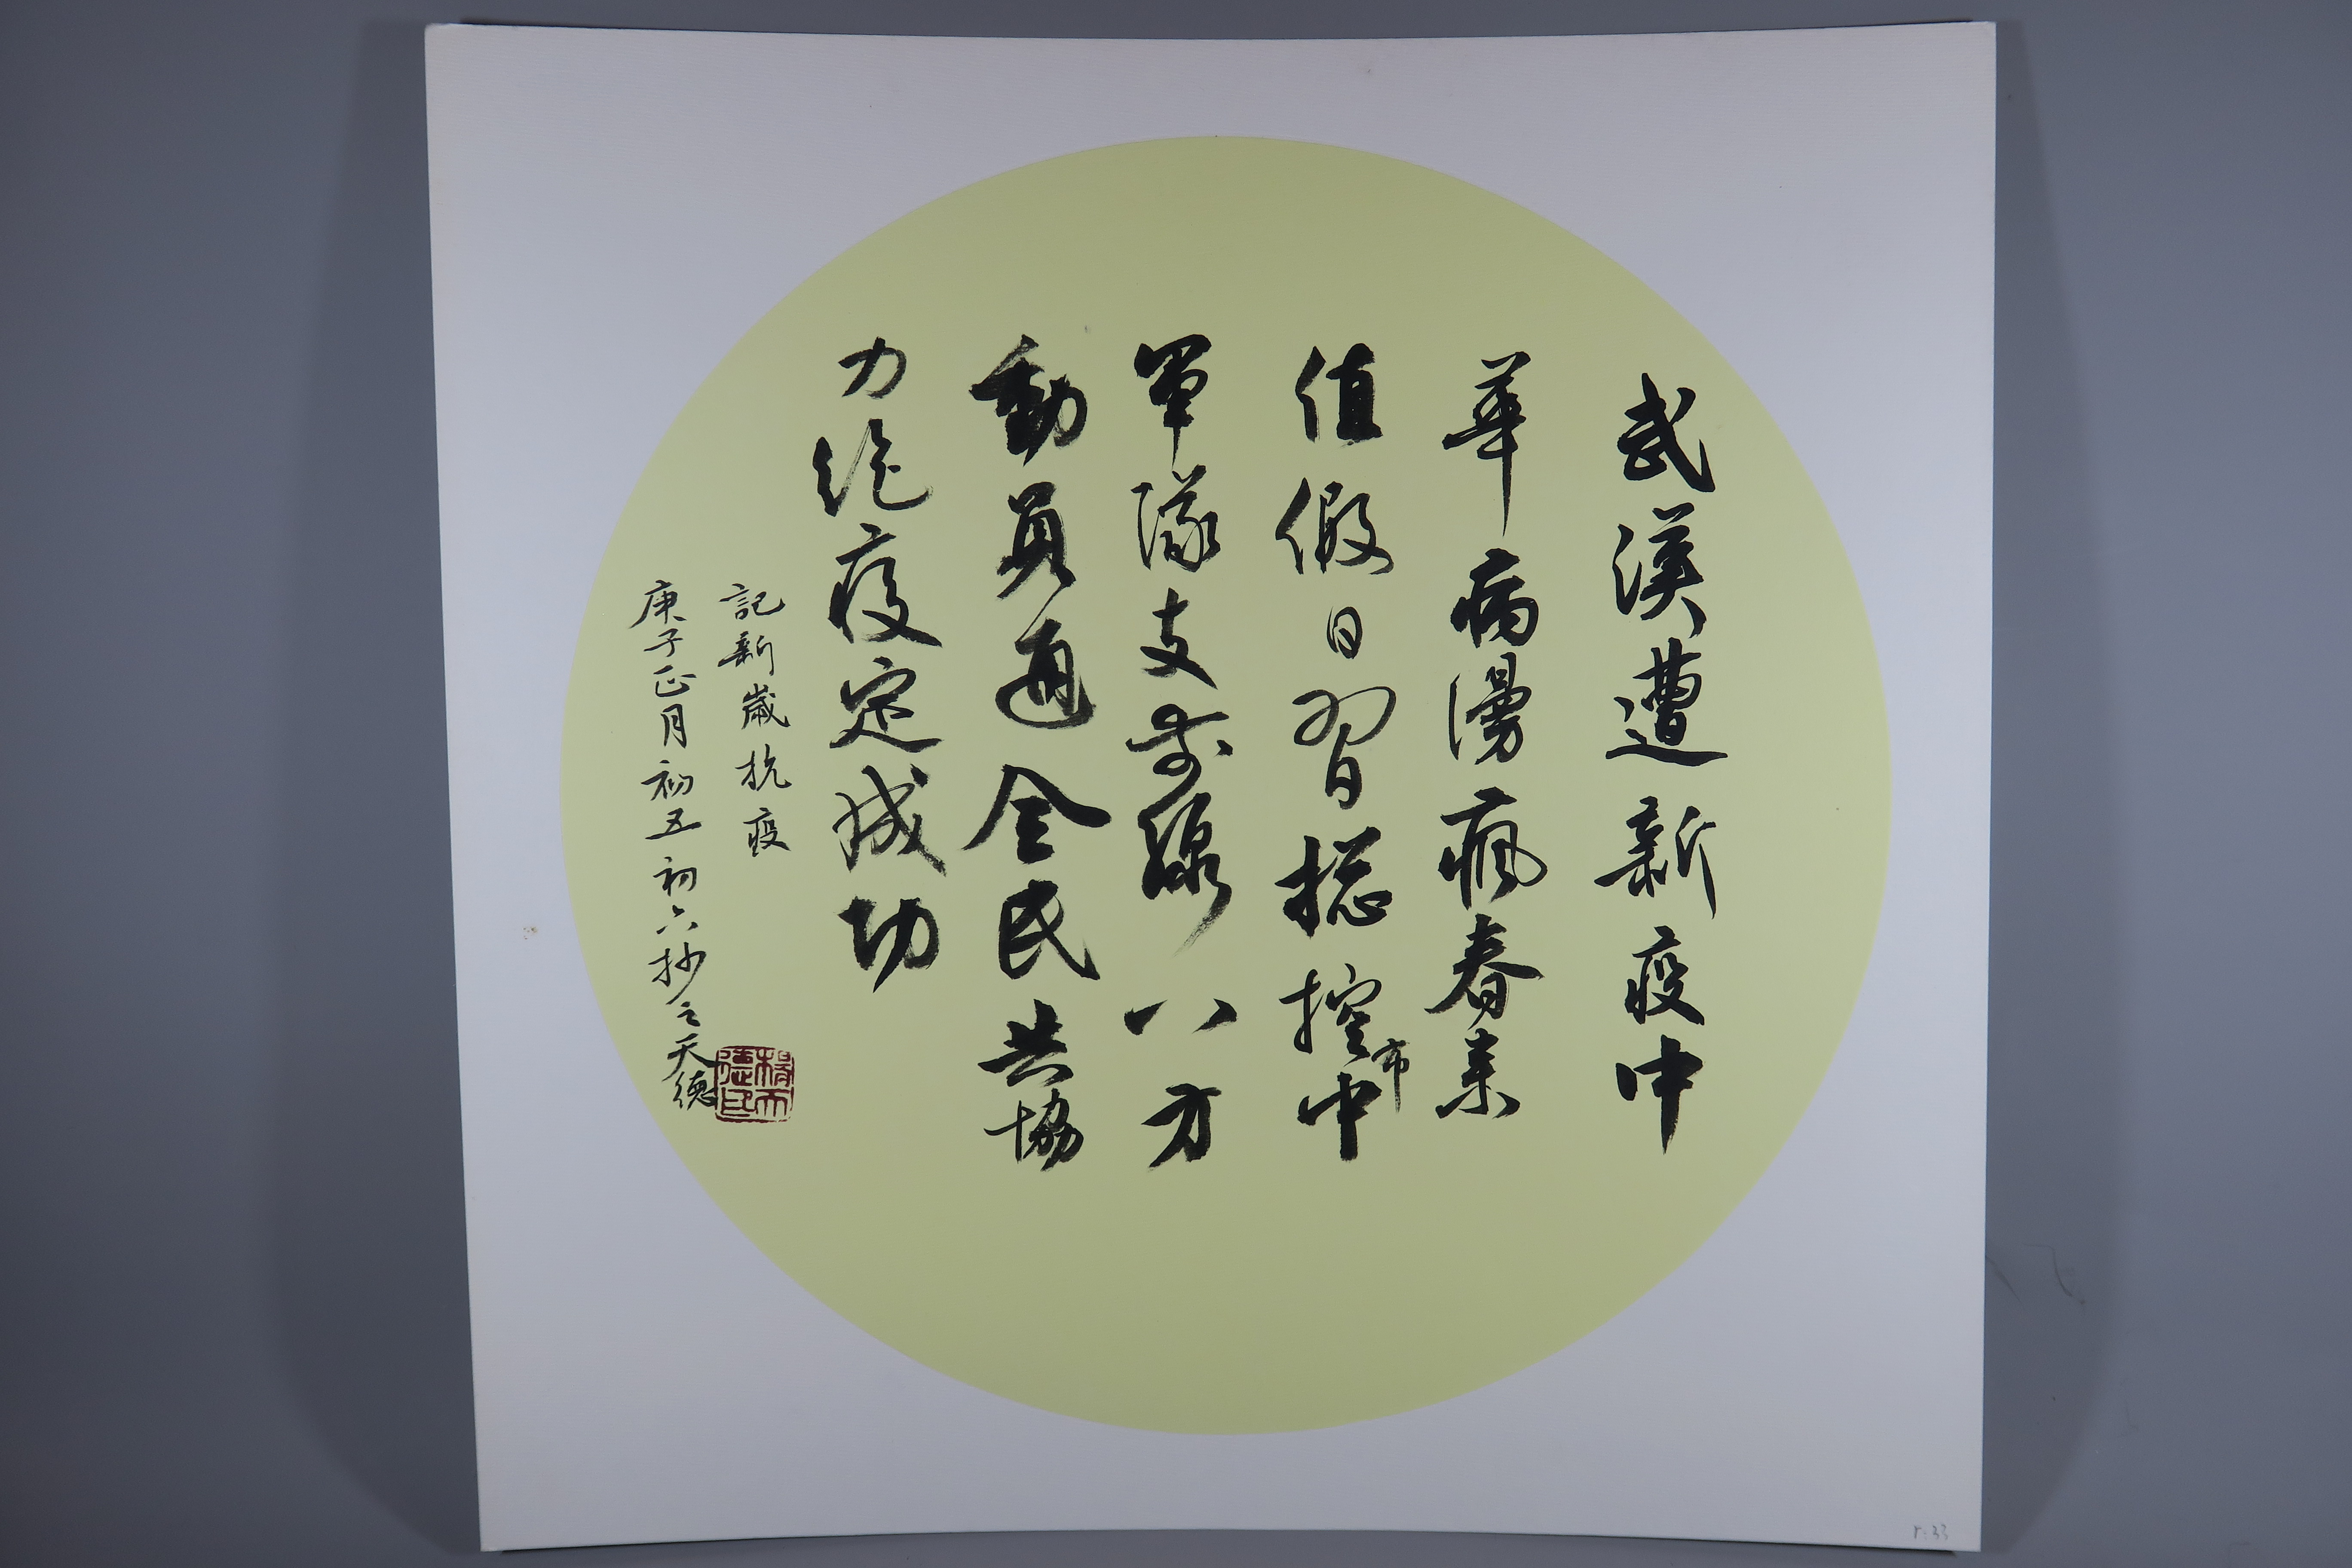 武漢遭新疫中
華病漫瘋春来
值假日習揔控市中
軍隊支前線八方
動員通全民共協
力絶疫定成功
記新歲抗疫
庚子正月初五初六抄之天德
楊天德印